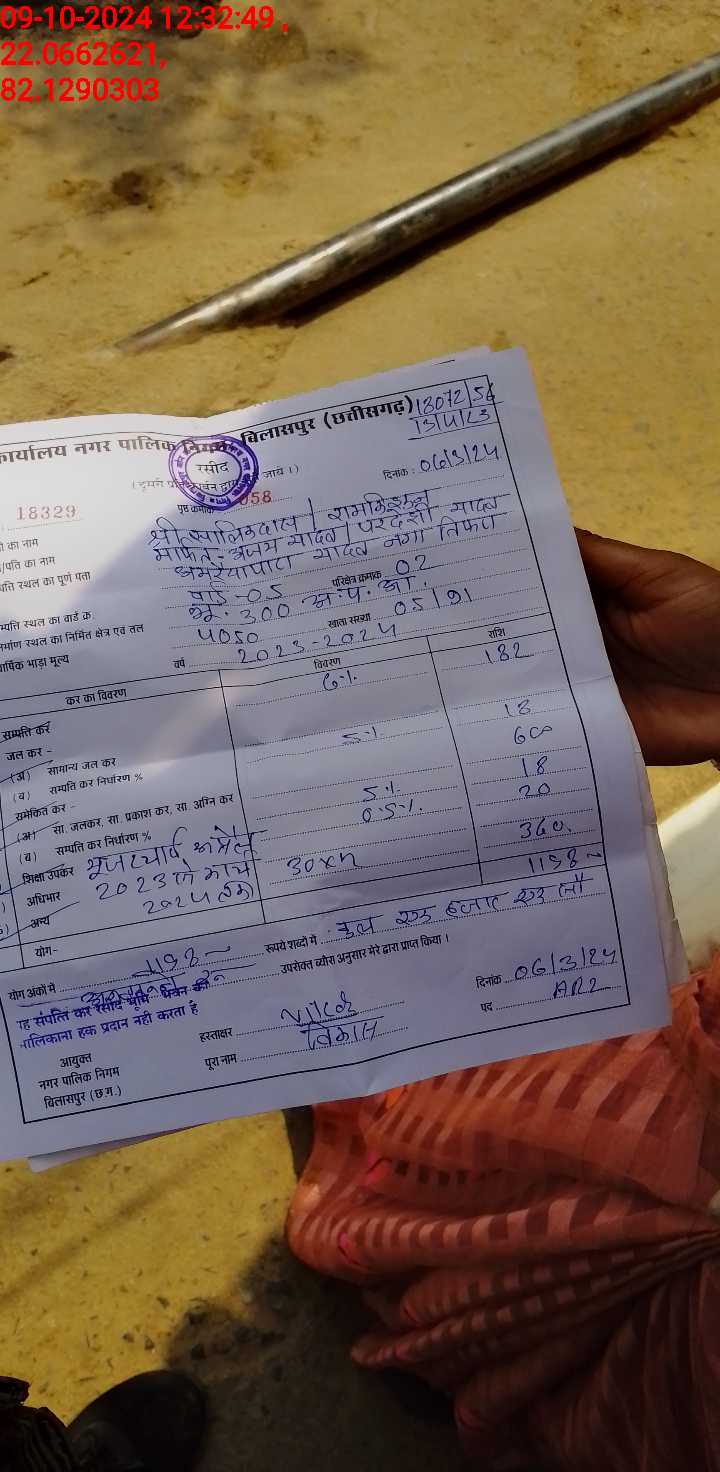 09-10-2024 12:32:49 ,
22.0662621,
82.1290303
कार्यालय नगर पालिक निगम, बिलासपुर (छत्तीसगढ़) 13072/56
13/4/23
रसीद
दिनांक : 06/3/24
18329 पृष्ठ क्रमांक 058
का नाम श्री रामकिशुन
/पति का नाम यादव / परदेशी यादव
स्थल का पूर्ण पता यादव तिफरा
म्पत्ति स्थल का वार्ड क्र. वार्ड - 05 परिक्षेत्र क्रमांक 02
स्थल का निर्मित क्षेत्र एवं तल भू. 300 अ.प. आ.
र्षिक भाड़ा मूल्य 4050 खाता संख्या 05/91
वर्ष 2023-2024
कर का विवरण विवरण राशि
सम्पत्ति कर 6% 182
जल कर -
(अ) सामान्य जल कर
(ब) सम्पति कर निर्धारण % 5% 18
समेकित कर -
(अ) सा. जलकर, सा. प्रकाश कर, सा. अग्नि कर 600
(ब) सम्पति कर निर्धारण % 5% 18
शिक्षा उपकर 0.5% 20
अधिभार
अन्य 2023 से मार्च 2024 तक 30x12 360
योग- 1198
योग अंकों में 1198 रूपये शब्दों में
उपरोक्त ब्यौरा अनुसार मेरे द्वारा प्राप्त किया ।
यह संपत्ति कर रसीद भूमि भवन की
मालिकाना हक प्रदान नही करता है
दिनांक 06/3/24
हस्ताक्षर पद ARI
पूरा नाम विकास
आयुक्त
नगर पालिक निगम
बिलासपुर (छ.ग.)